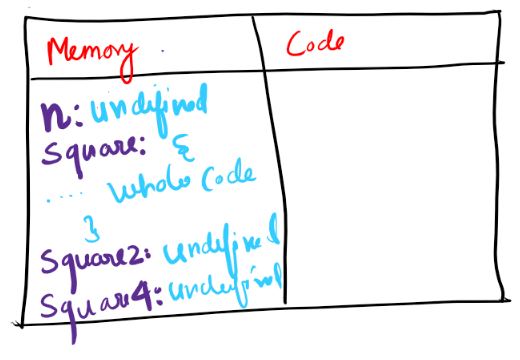 Memory
Code
n: undefined
square: {
.... whole code
}
square2: undefined
square4: undefined